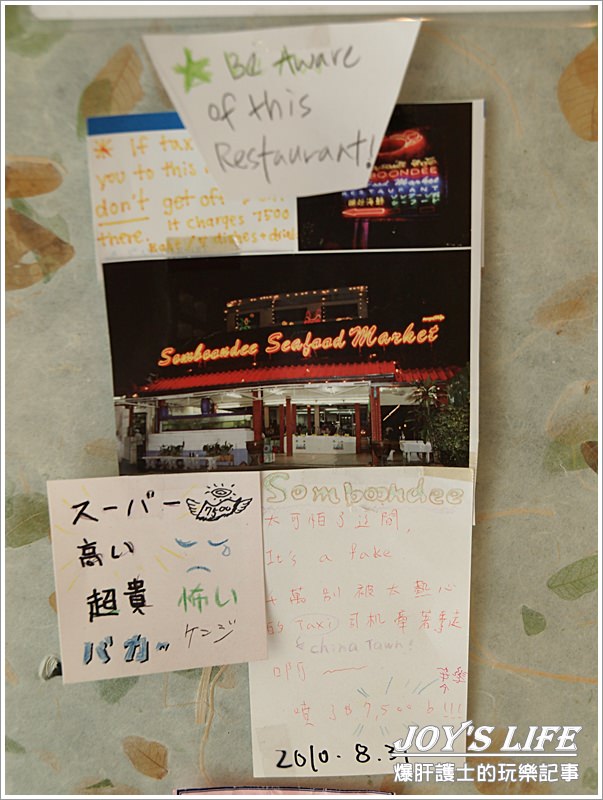 Be Aware
of this
Restaurant!
* If tax
you to this
don't get off
there. It charges 7500
Baht
BOONDEE
Seafood Market
RESTAURANT
Somboondee Seafood Market
スーパー 7500
高い
超貴 怖い
バカー ケンジ
Somboondee
太可怕了這間,
It's a fake
千萬別被太熱心
的 Taxi 司机牽著手走
& china Town!
啊
噴了฿7,500
2010.8.31
JOY'S LIFE
爆肝護士的玩樂記事